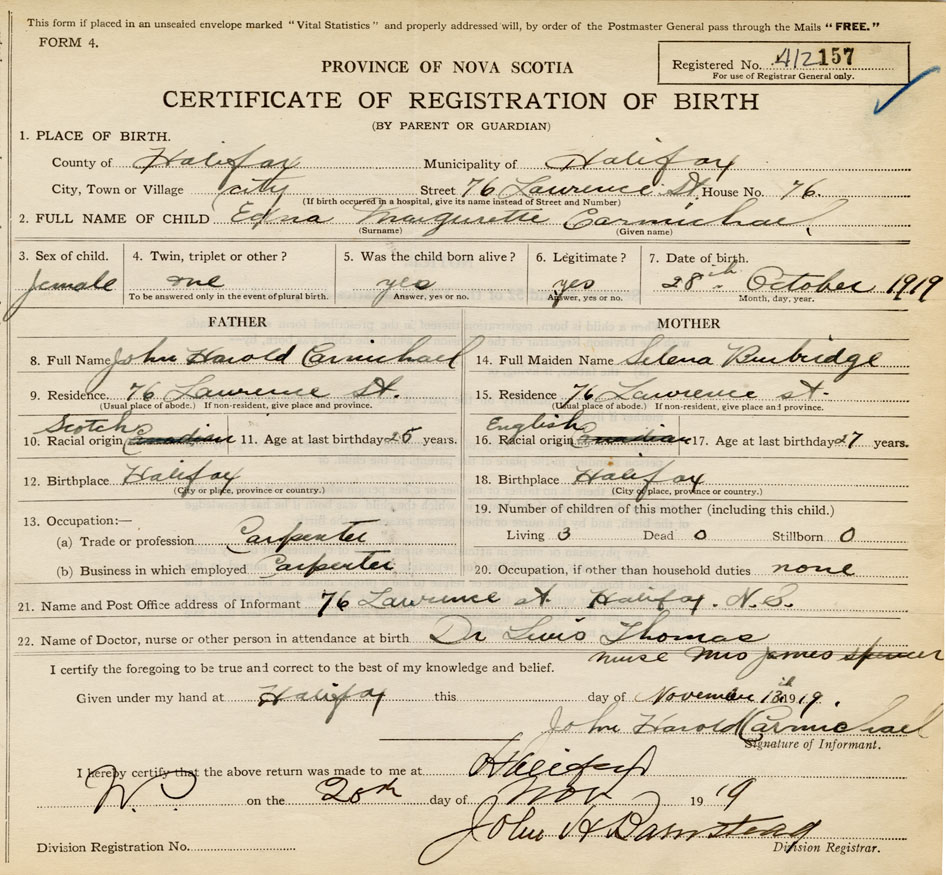 This form if placed in an unsealed envelope marked "Vital Statistics" and properly addressed will, by order of the Postmaster General pass through the Mails "FREE."
FORM 4.
Registered No. 412157
For use of Registrar General only.
PROVINCE OF NOVA SCOTIA
CERTIFICATE OF REGISTRATION OF BIRTH
(BY PARENT OR GUARDIAN)
1. PLACE OF BIRTH.
County of Halifax Municipality of Halifax
City, Town or Village city Street 76 Lawrence St. House No. 76
(If birth occurred in a hospital, give its name instead of Street and Number)
2. FULL NAME OF CHILD Edna Margurette Carmichael
(Surname) (Given name)
3. Sex of child. 4. Twin, triplet or other? 5. Was the child born alive? 6. Legitimate? 7. Date of birth.
female one yes yes 28th October 1919
To be answered only in the event of plural birth. Answer, yes or no. Answer, yes or no. Month, day, year.
FATHER MOTHER
8. Full Name John Harold Carmichael 14. Full Maiden Name Selena Burbridge
9. Residence. 76 Lawrence St. 15. Residence 76 Lawrence st.
(Usual place of abode.) If non-resident, give place and province. (Usual place of abode.) If non-resident, give place and province.
Scotch English
10. Racial origin Canadian 11. Age at last birthday 25 years. 16. Racial origin Canadian 17. Age at last birthday 27 years.
12. Birthplace Halifax 18. Birthplace Halifax
(City or place, province or country.) (City or place, province or country.)
13. Occupation:— 19. Number of children of this mother (including this child.)
(a) Trade or profession Carpenter Living 3 Dead 0 Stillborn 0
(b) Business in which employed Carpenter 20. Occupation, if other than household duties none
21. Name and Post Office address of Informant 76 Lawrence st. Halifax. N.S.
22. Name of Doctor, nurse or other person in attendance at birth Dr Lewis Thomas
nurse Mrs James spencer
I certify the foregoing to be true and correct to the best of my knowledge and belief.
Given under my hand at Halifax this day of November 13th 1919
John Harold Carmichael
Signature of Informant.
I hereby certify that the above return was made to me at Halifax
on the 20th day of Nov 1919
John H Barnstead
Division Registration No. Division Registrar.